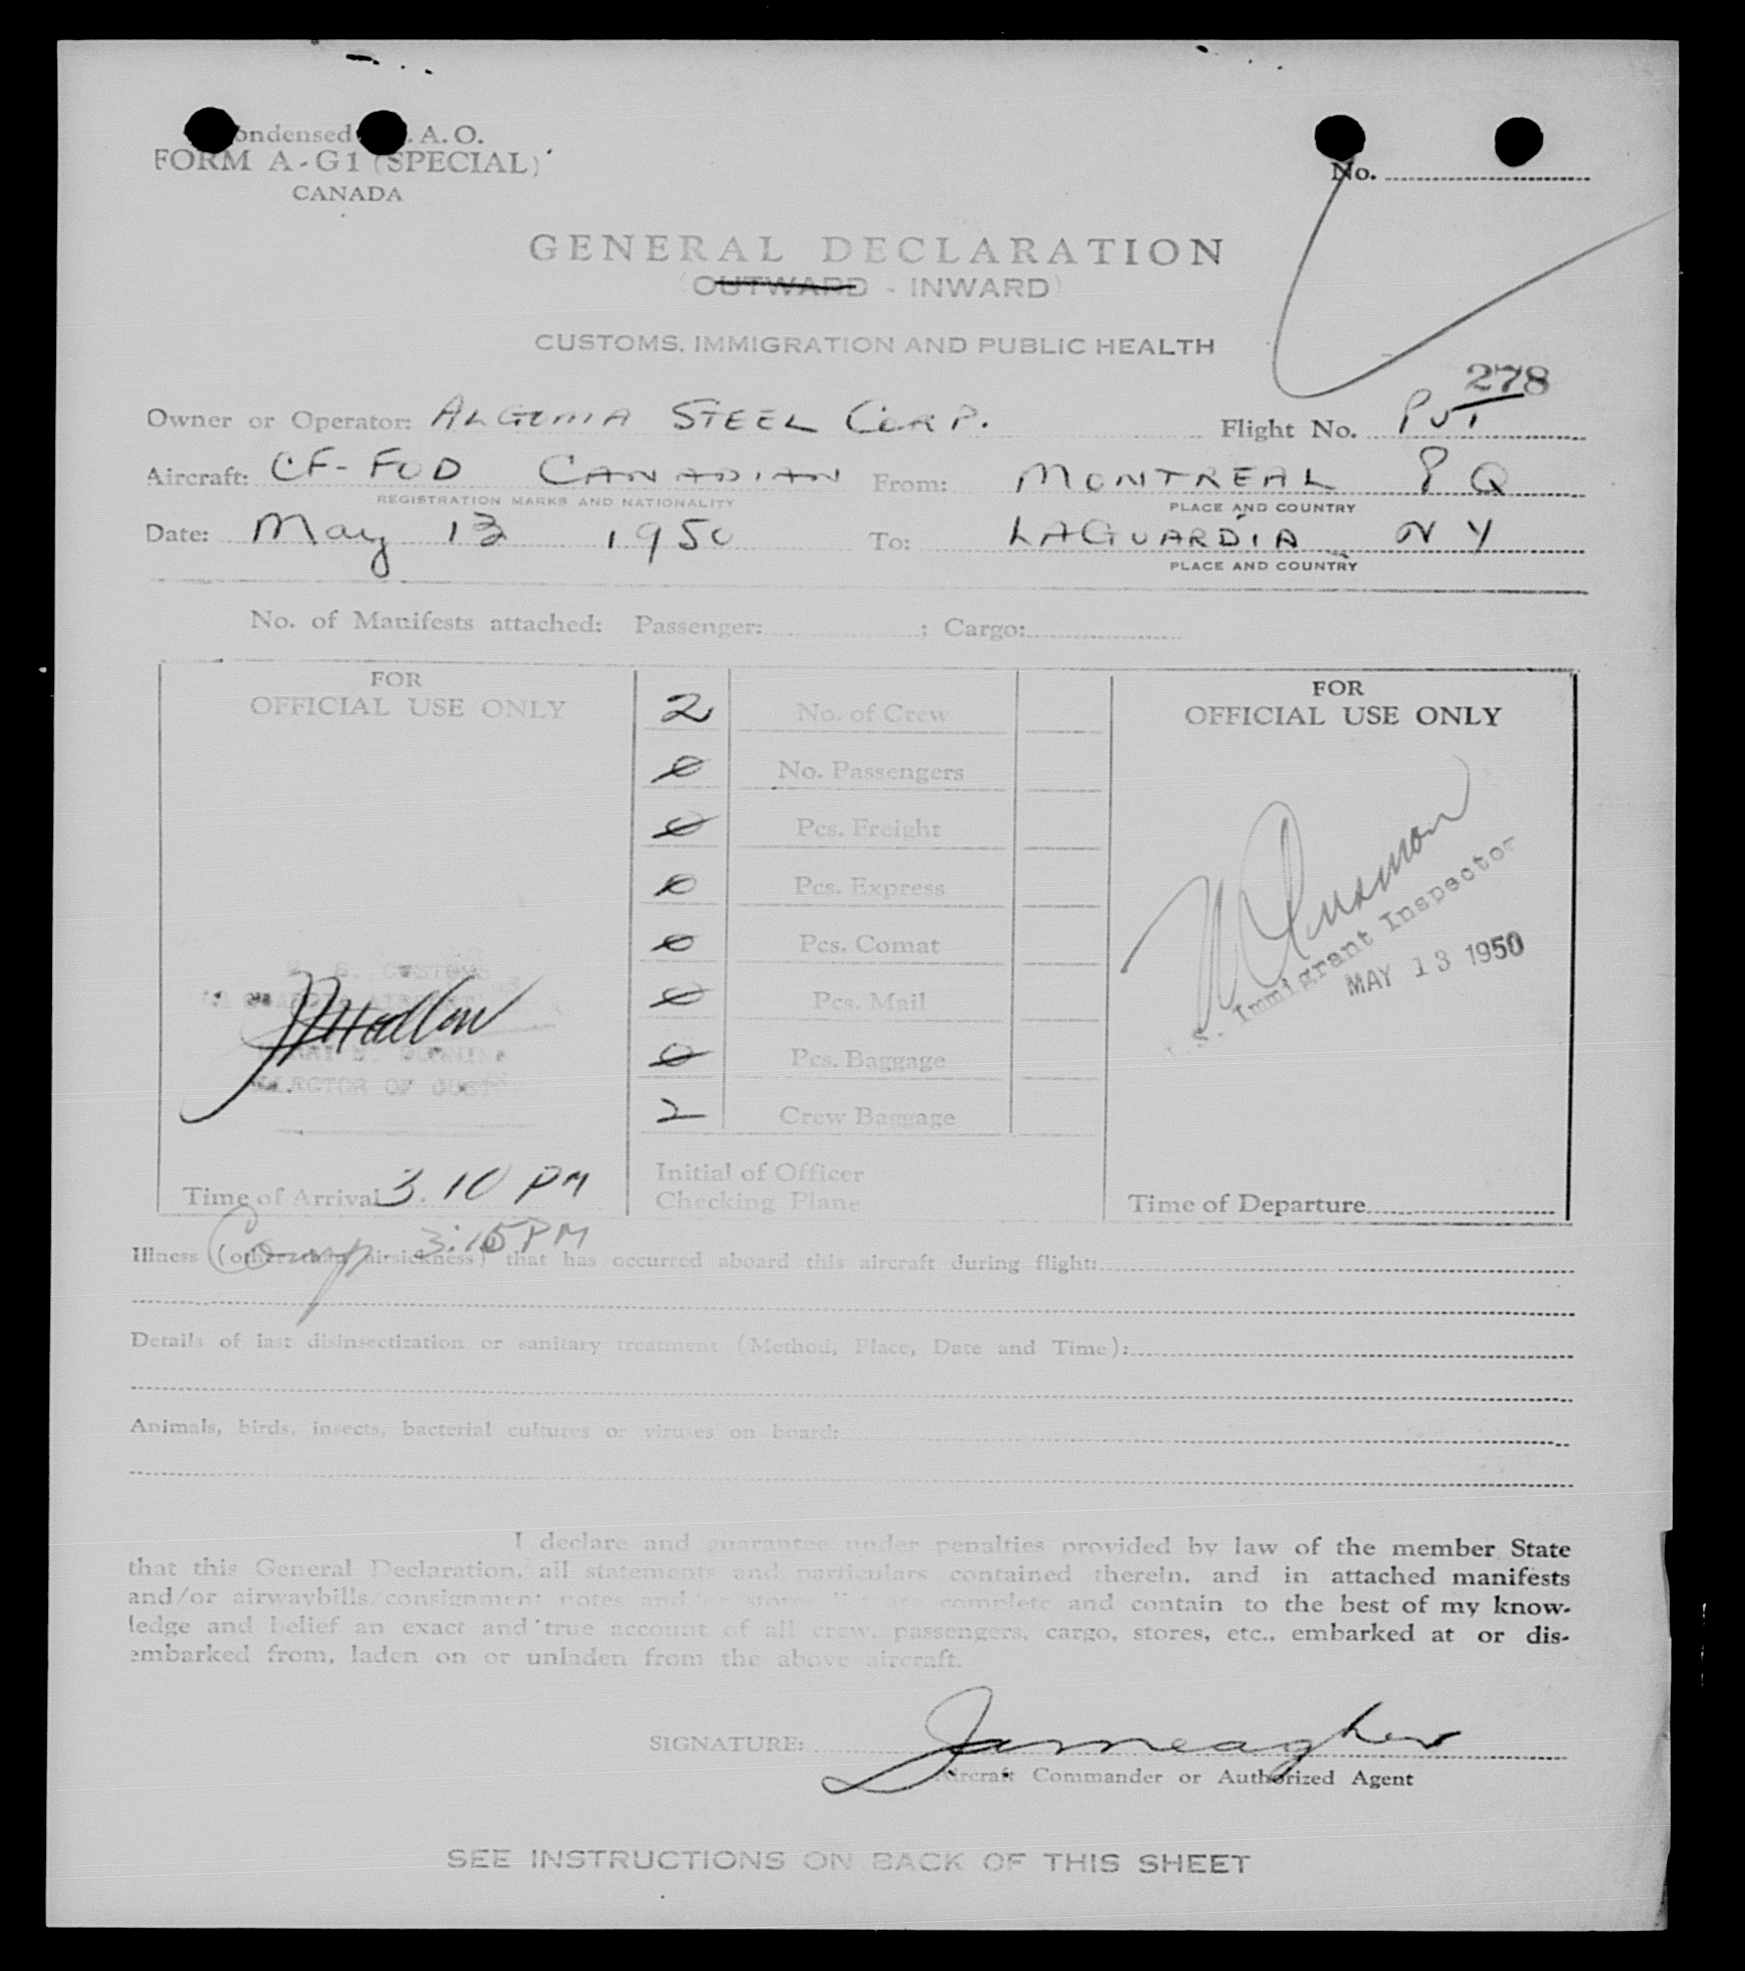 ondensed A. O.
FORM A-G1 (SPECIAL)
CANADA
No.
GENERAL DECLARATION
(OUTWARD - INWARD)
CUSTOMS, IMMIGRATION AND PUBLIC HEALTH
278
Owner or Operator: ALGOMA STEEL CORP. Flight No. PVT
Aircraft: CF-FOD CANADIAN From: MONTREAL P Q
REGISTRATION MARKS AND NATIONALITY PLACE AND COUNTRY
Date: May 13 1950 To: LAGUARDIA N Y
PLACE AND COUNTRY
No. of Manifests attached: Passenger: ; Cargo:
FOR
OFFICIAL USE ONLY
2 No. of Crew
0 No. Passengers
0 Pcs. Freight
0 Pcs. Express
0 Pcs. Comat
0 Pcs. Mail
0 Pcs. Baggage
2 Crew Baggage
Initial of Officer
Checking Plane
FOR
OFFICIAL USE ONLY
S. Immigrant Inspector
MAY 13 1950
U. S. CUSTOMS
COLLECTOR OF CUST
Time of Arrival 3.10 PM
Time of Departure
Comp 3:15 PM
Illness (other than airsickness) that has occurred aboard this aircraft during flight:
Details of last disinsectization or sanitary treatment (Method, Place, Date and Time):
Animals, birds, insects, bacterial cultures or viruses on board:
I declare and guarantee under penalties provided by law of the member State
that this General Declaration, all statements and particulars contained therein, and in attached manifests
and/or airwaybills/consignment notes and/or stores list are complete and contain to the best of my know-
ledge and belief an exact and true account of all crew, passengers, cargo, stores, etc., embarked at or dis-
embarked from, laden on or unladen from the above aircraft.
SIGNATURE: Jameagher
Aircraft Commander or Authorized Agent
SEE INSTRUCTIONS ON BACK OF THIS SHEET